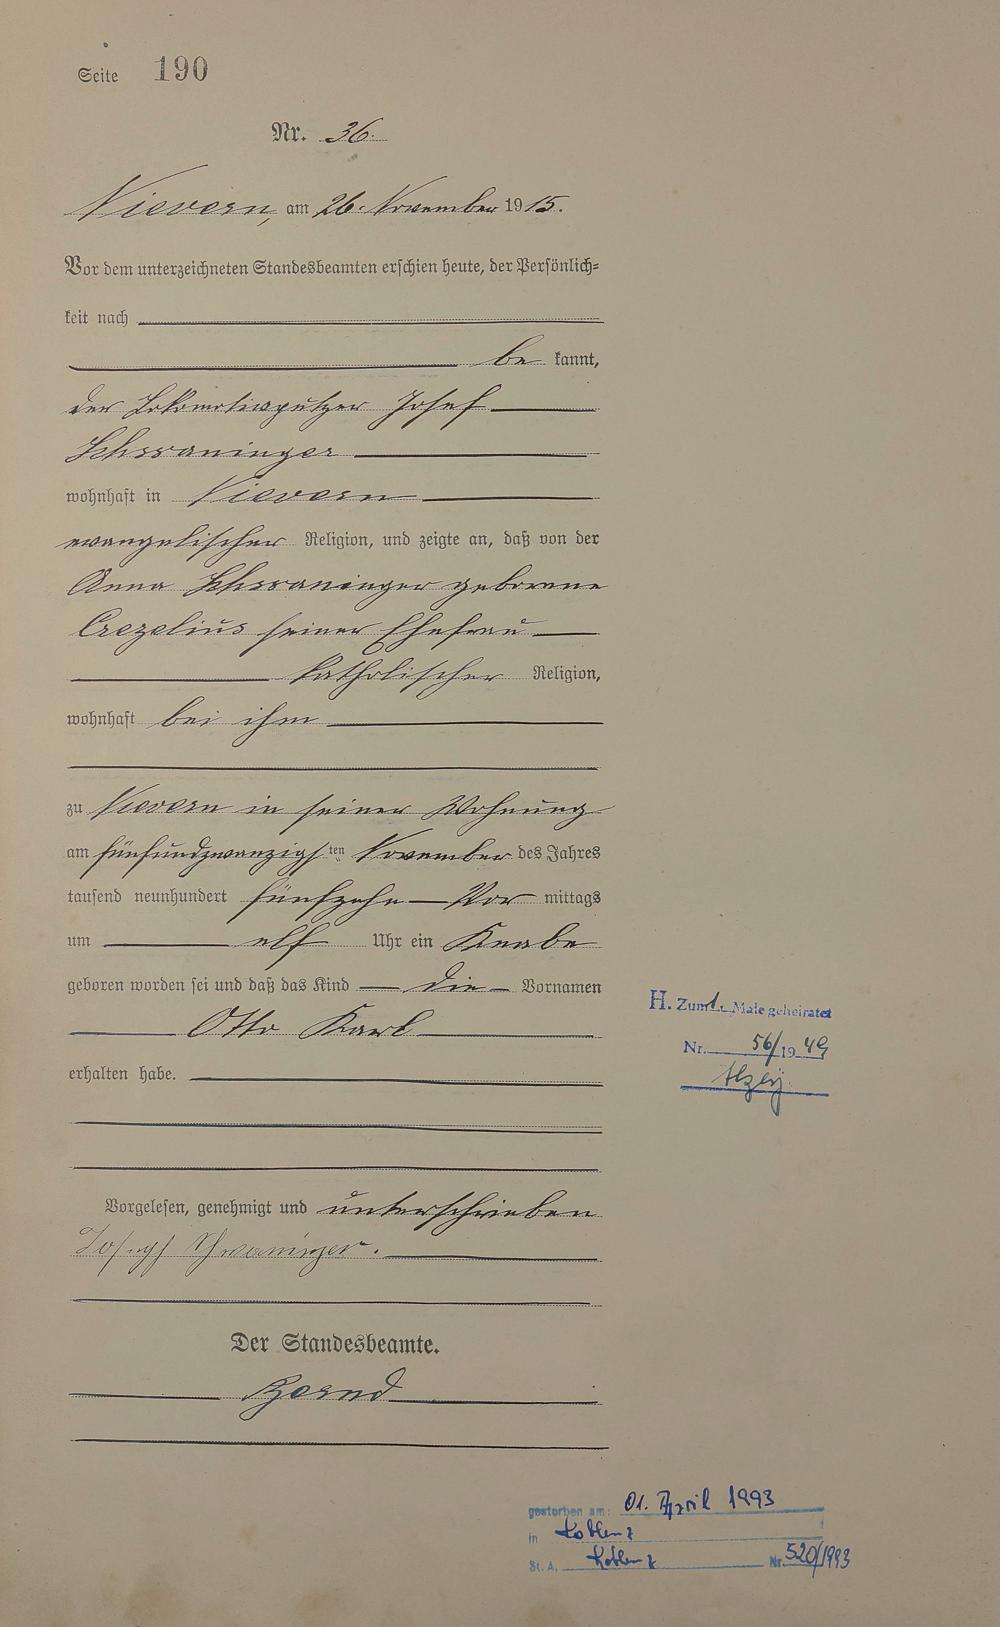 Seite 190
Nr. 36.
Nievern, am 26. November 1915.
Vor dem unterzeichneten Standesbeamten erschien heute, der Persönlich-
keit nach
be kannt,
der Lokomotivputzer Josef
Schwaninger
wohnhaft in Nievern
evangelischer Religion, und zeigte an, daß von der
Anna Schwaninger geborene
Crezelius seiner Ehefrau
katholischer Religion,
wohnhaft bei ihm
zu Nievern in seiner Wohnung
am fünfundzwanzigsten November des Jahres
tausend neunhundert fünfzehn Vor mittags
um elf Uhr ein Knabe
geboren worden sei und daß das Kind die Vornamen
Otto Karl
erhalten habe.
H. Zum 1. Male geheiratet
Nr. 56/1949
Alzey.
Vorgelesen, genehmigt und unterschrieben
Joseph Schwaninger.
Der Standesbeamte.
gestorben am: 01. April 1993
in Koblenz
St. A. Koblenz Nr. 520/1993